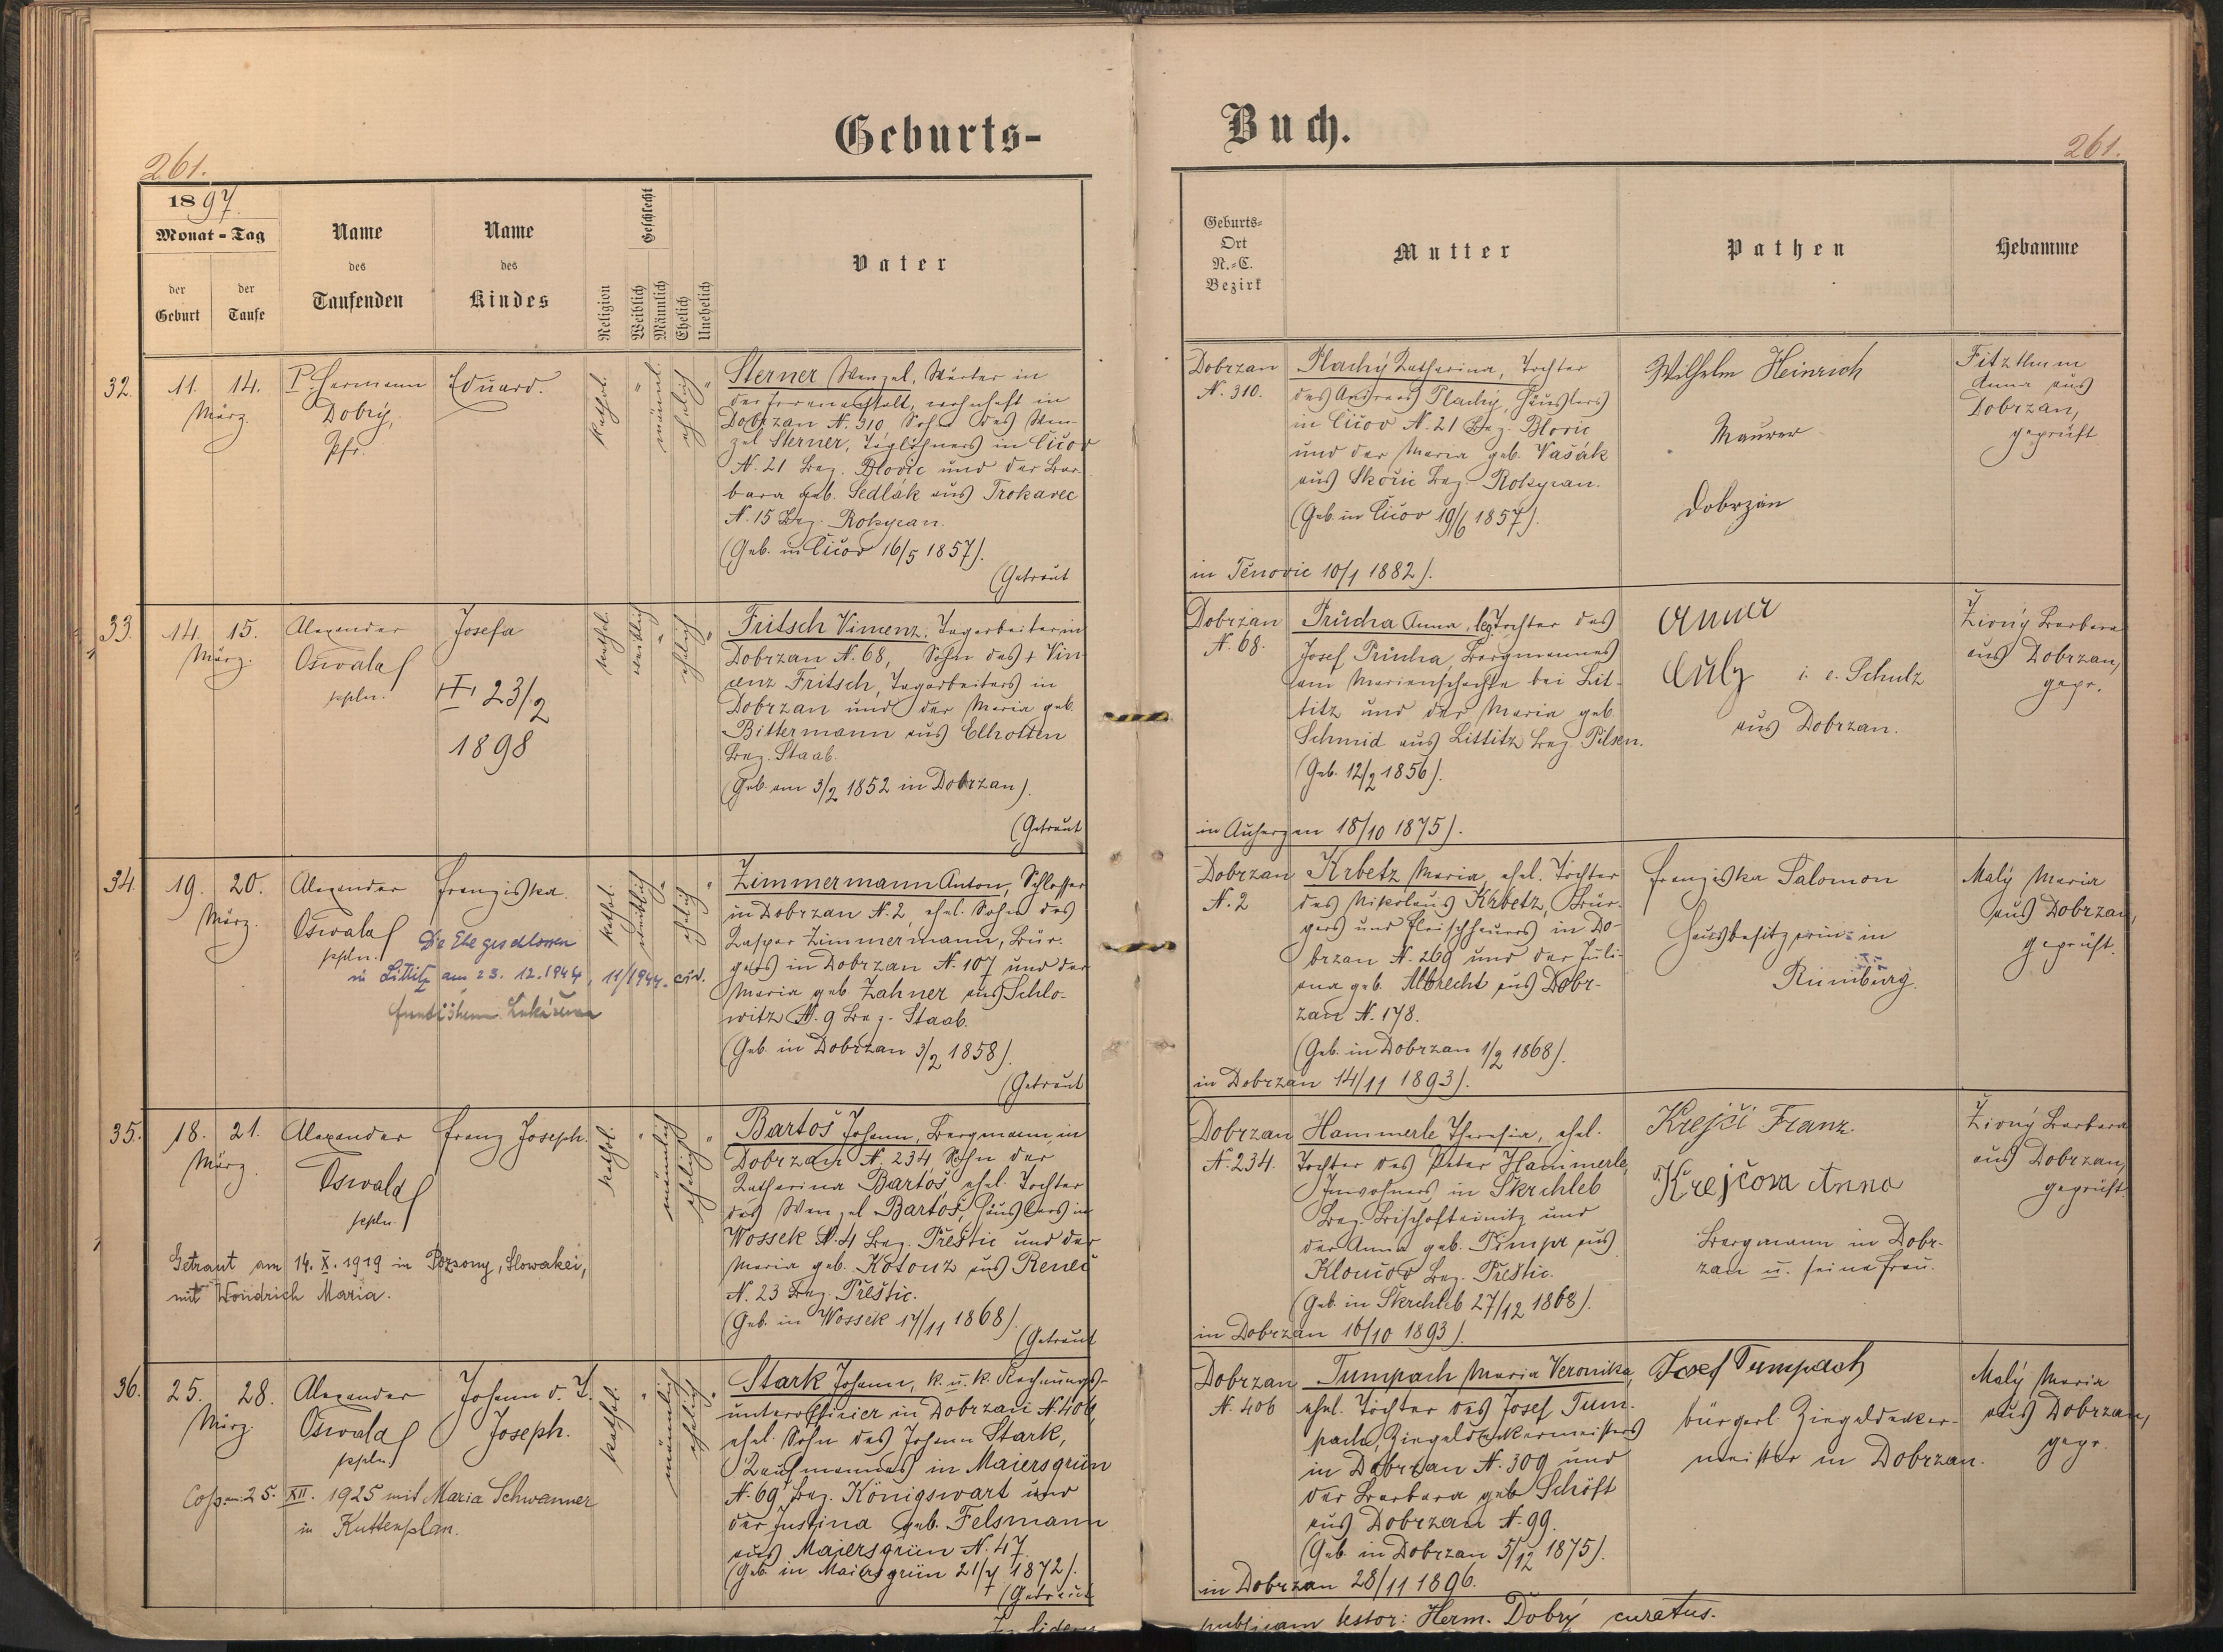 Geburts-
Buch.
261.
261.
1897.
Monat - Tag
der Geburt
der Taufe
Name des Taufenden
Name des Kindes
Religion
Geschlecht
Weiblich
Männlich
Ehelich
Unehelich
Vater
Geburts-
Ort
N.-C.
Bezirk
Mutter
Pathen
Hebamme
32.
11. 14.
März.
P. Hermann
Dobrý,
Pfr.
Eduard.
kathol.
"
männl.
ehelich
"
Sterner Wenzel, Wärter in
der Irrenanstalt, wohnhaft in
Dobrzan N. 310, Sohn des Wen-
zel Sterner, Taglöhners in Čičov
N. 21 Bez. Blovic und der Bar-
bara geb. Sedlák aus Trokavec
N. 15 Bez. Rokycan.
(Geb. in Čičov 16/5 1857).
(Getraut
Dobrzan
N. 310.
Plachý Katharina, Tochter
des Andreas Plachý, Häuslers
in Čičov N. 21 Bez. Blovic
und der Maria geb. Vašák
aus Skořic Bez. Rokycan.
(Geb. in Čičov 19/6 1857).
in Těnovic 10/1 1882).
Wilhelm Heinrich
Maurer
Dobrzan
Fitzthum
Anna aus
Dobrzan,
geprüft.
33.
14. 15.
März.
Alexander
Oswald
kpln.
Josefa
23/2
1898
kathol.
weiblich
"
ehelich
"
Fritsch Vincenz, Tagarbeiter in
Dobrzan N. 68, Sohn des + Vin-
cenz Fritsch, Tagarbeiters in
Dobrzan und der Maria geb.
Bittermann aus Elhotten
Bez. Staab.
(Geb. am 3/2 1852 in Dobrzan).
(Getraut
Dobrzan
N. 68.
Průcha Anna, leg. Tochter des
Josef Průcha, Bergmannes
am Marienschachte bei Lit-
titz und der Maria geb.
Schmid aus Littitz Bez. Pilsen.
(Geb. 12/2 1856).
in Auherzen 18/10 1875).
Anna
Culz i. e. Schulz
aus Dobrzan.
Živný Barbara
aus Dobrzan,
gepr.
34.
19. 20.
März.
Alexander
Oswald
kpln.
Franziska.
Die Ehe geschlossen
in Littitz am 23. 12. 1944, 11/1944.
kathol.
weiblich
"
ehelich
"
Zimmermann Anton, Schlosser
in Dobrzan N. 2, ehel. Sohn des
Kaspar Zimmermann, Bür-
gers in Dobrzan N. 107 und der
Maria geb. Zahner aus Schlo-
witz N. 9 Bez. Staab.
(Geb. in Dobrzan 3/2 1858).
(Getraut
Dobrzan
N. 2
Krbetz Maria, ehel. Tochter
des Nikolaus Krbetz, Bür-
gers und Fleischhauers in Do-
brzan N. 269 und der Juli-
ana geb. Albrecht aus Dobr-
zan N. 178.
(Geb. in Dobrzan 1/2 1868).
in Dobrzan 14/11 1893).
Franziska Salomon
Hausbesitzerin in
Rumburg.
Malý Maria
aus Dobrzan,
geprüft.
35.
18. 21.
März.
Alexander
Oswald
kpln.
Franz Joseph.
Getraut am 14. X. 1919 in Pozsony, Slowakei,
mit Wondrich Maria.
kathol.
"
männlich
ehelich
"
Bartoš Johann, Bergmann in
Dobrzan N. 234, Sohn der
Katharina Bartoš, ehel. Tochter
des Wenzel Bartoš, Häuslers in
Wossek N. 4 Bez. Přeštic und der
Maria geb. Kotouz aus Renec
N. 23 Bez. Přeštic.
(Geb. in Wossek 17/11 1868).
(Getraut
Dobrzan
N. 234.
Hammerle Theresia, ehel.
Tochter des Peter Hammerle,
Inwohners in Skrchleb
Bez. Bischofteinitz und
der Anna geb. Timpr aus
Kloučov Bez. Přeštic.
(Geb. in Skrchleb 27/12 1868).
in Dobrzan 16/10 1893).
Krejči Franz.
Krejčova Anna
Bergmann in Dobr-
zan u. seine Frau.
Živný Barbara
aus Dobrzan,
geprüft.
36.
25. 28.
März
Alexander
Oswald
kpln.
Johann v. N.
Joseph.
Cop. am 25. XII. 1925 mit Maria Schwanner
in Kuttenplan.
kathol.
"
männlich
ehelich
"
Stark Johann, k. u. k. Rechnungs-
unterofficier in Dobrzan N. 406,
ehel. Sohn des Johann Stark,
Kaufmannes in Maiersgrün
N. 69 Bez. Königswart und
der Justina geb. Felsmann
aus Maiersgrün N. 47.
(Geb. in Maiersgrün 21/7 1872).
(Getraut
Dobrzan
N. 406
Tumpach Maria Veronika,
ehel. Tochter des Josef Tum-
pach, Ziegeldeckermeisters
in Dobrzan N. 309 und
der Barbara geb. Schöft
aus Dobrzan N. 99.
(Geb. in Dobrzan 5/12 1875).
in Dobrzan 28/11 1896.
Josef Tumpach
bürgerl. Ziegeldecker-
meister in Dobrzan.
Malý Maria
aus Dobrzan,
gepr.
In fidem
publicam testor: Herm. Dobrý curatus.